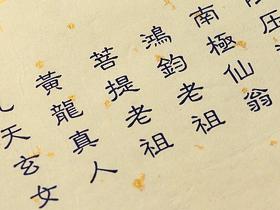 南極仙翁
鴻鈞老祖
菩提老祖
黃龍真人
九天玄女